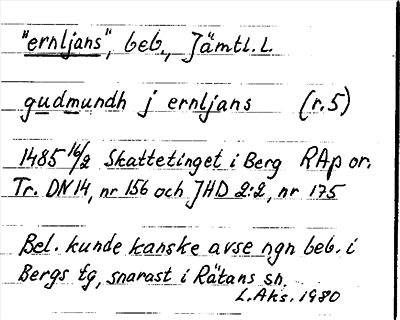 "ernljans", beb., Jämtl. L.
gudmundh j ernljans (r. 5)
1485 16/2 Skattetinget i Berg RAp or.
Tr. DN 14, nr 156 och JHD 2:2, nr 175
Bel. kunde kanske avse ngn beb. i
Bergs tg, snarast i Rätans sn.
L. Aks. 1980